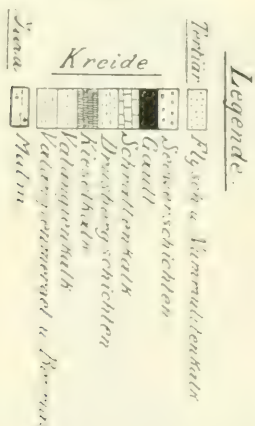 Legende
Tertiär
Flysch u Nummulitenkalk
Kreide
Seewerschichten
Gault
Schrattenkalk
Drusbergschichten
Kieselkalk
Valangienkalk
Valangienmergel u
Jura
Malm